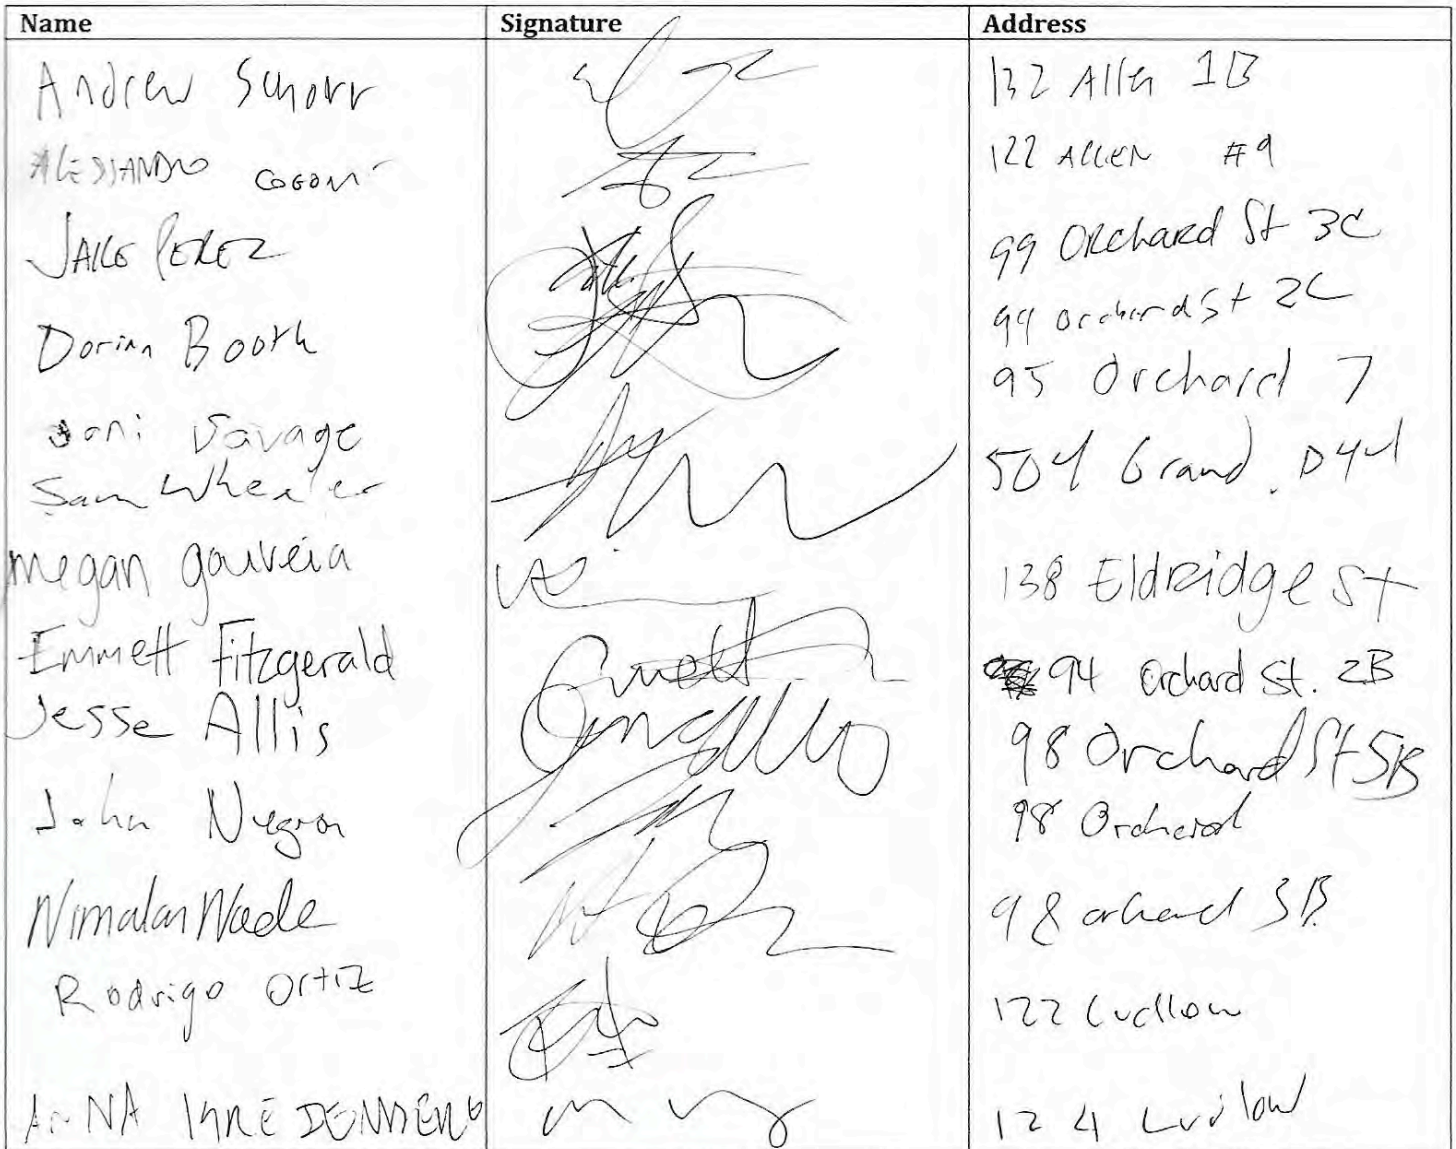 Name Signature Address
Andrew Schorr 132 Allen 1B
ALESSANDRO 122 ALLEN #9
JAKE PEREZ 99 ORchaRd St 3C
Dorian Booth 99 orchard St 2C
Savage 95 Orchard 7
Sam Wheeler 504 Grand D44
megan gouveia 138 Eldridge St
Emmett Fitzgerald Emmett 94 Orchard St. 2B
Jesse Allis 98 Orchard St 5B
John Negron 98 Orchard
Nimalan Nade 98 orchard 3B
Rodrigo Ortiz 122 Ludlow
ANNA 124 Ludlow